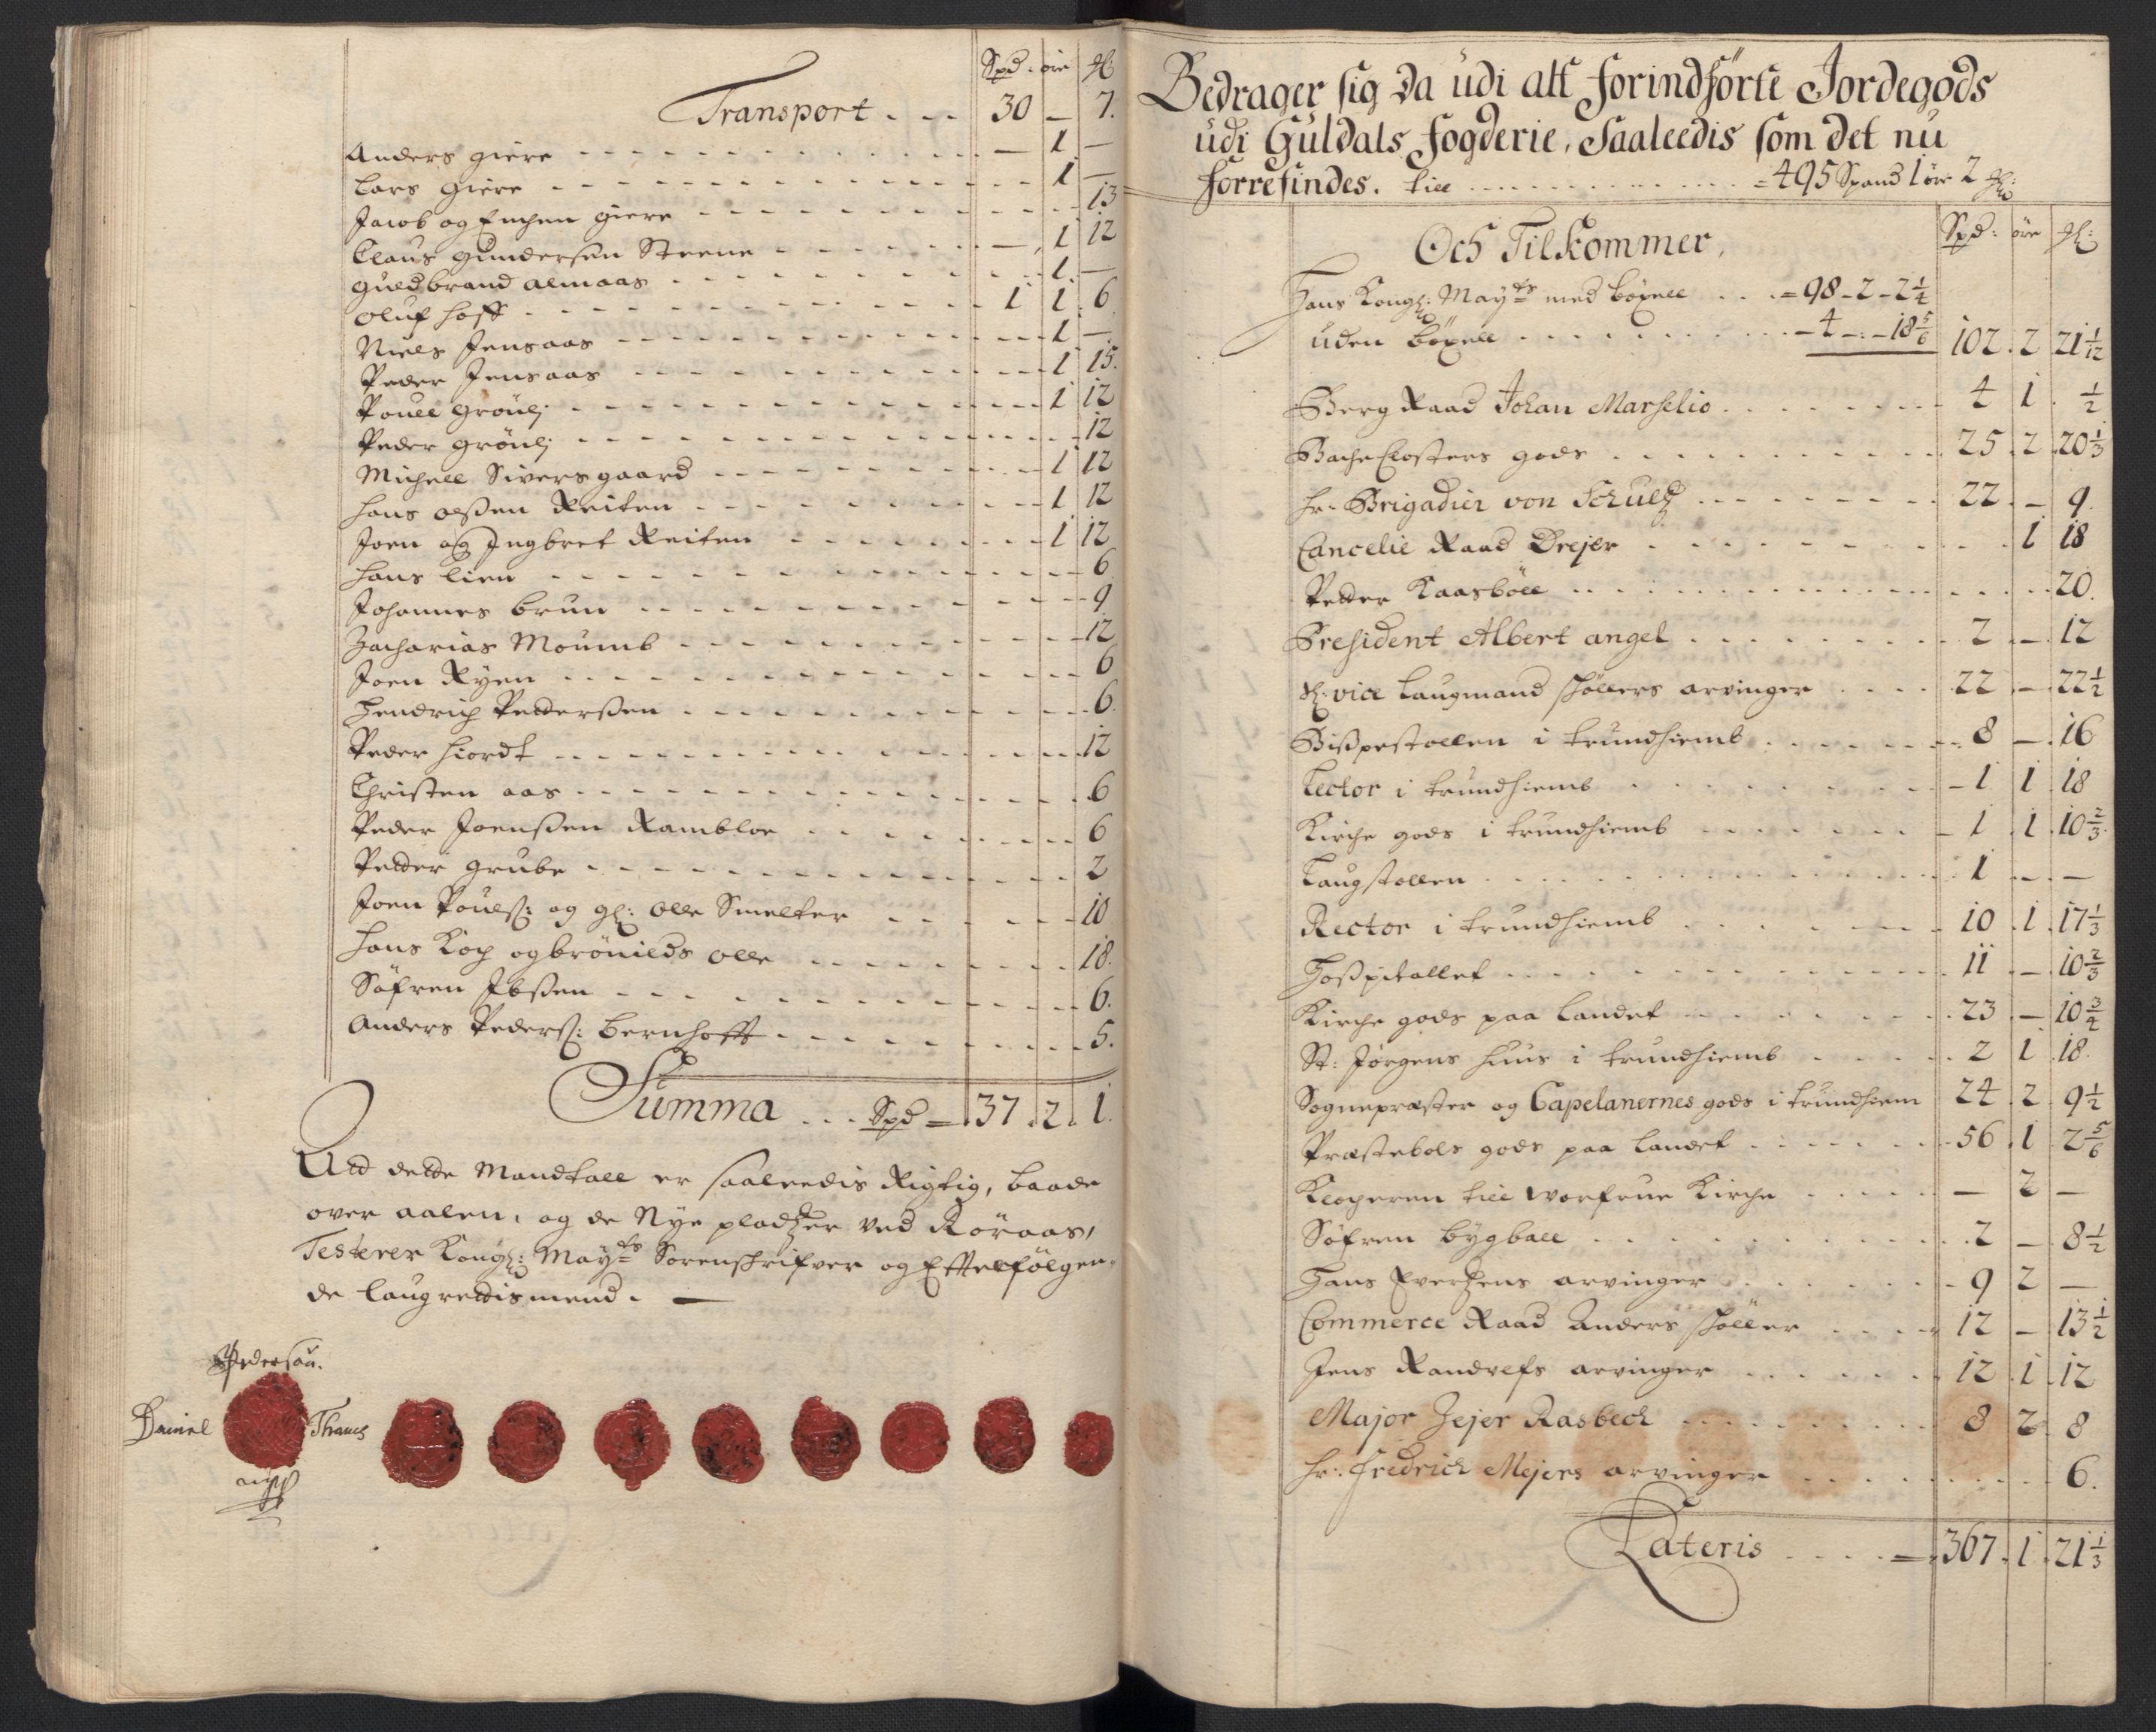 Spd: öre &:
Transport . . . 30 — 7.
Anders giere — 1 —
Lars giere 1 —
Jacob og Enchen giere 13
Claus Gundersen Steene — 1 12
Guldbrand almaas 1 —
Oluf hoff 1 1 6
Niels Jensaas 1 —
Peder Jensaas 1 15.
Pouel Grönli 1 12
Peder Grönli 12
Michell Siversgaard 1 12
Hans olßen Reiten 1 12
Joen og Ingbret Reiten 1 12
Hans lien 6
Johannes brun 9
Zacharias Moumb 12
Joen Ryen 6
Hendrich Pederßen 6.
Peder hiordt 12
Christen aas 6
Peder Joenßen Rambloe 6
Peder grube 2
Joen Pouelß: og gl: Olle Smelter 10
Hans Koch og brönilds Olle 18.
Söfren Ibßen 6.
Anders Pederß: Bernhofft 5.
Summa . . . Spd = 37 . 2 . 1.
Att dette Mandtall er saaledis Rigtig, baade
over aalen, og de Nye pladtzer ved Röraas,
Testerer Kongl: Mayts Sorenskrifver og Effterfölgen-
de laugrettismend. —
Pedersön.
Daniel Thaues
Bedrager sig da udi alt forindförte Jordegods
udi Guldals fogderie, Saaleedis som det nu
forrefindes. till = 495 Spand 1 öre 2 &:
Och Tilkommer, Spd: öre &:
Hans Kongl: Mayts med böxell . . . = 98 - 2 - 2 1/4
uden böxell - 4 - : - 18 5/6 102 . 2 21 1/12
Berg Raad Johan Marselio 4 1 . 1/2
Bache Closters gods 25 . 2 . 20 1/3
Hr. Brigadier von Schultz 22 . — 9.
Cancelie Raad Drejer 1 18
Peder Kaasböll 20.
President Albert angel 2 — 12
Sl: vice laugmand Schöllers arvinger 22 — 22 1/2
Bißpestollen i trundhiemb 8 — 16
Lector i trundhiemb 1 1 18
Kirche gods i trundhiemb 1 . 1 . 10 2/3
Laugstollen 1 — —
Rector i trundhiemb 10 . 1 . 17 1/3
Hoßpitallet 11 — 10 2/3
Kirche gods paa landet 23 — 10 3/4
St: Jörgens huus i trundhiemb 2 1 18.
Sognepræster og Capelanernes gods i trundhiem 24 . 2 . 9 1/2
Præstebols gods paa landet 56 . 1 . 2 5/6
Klocheren till worfrue Kirche — 2 —
Söfren bygball 2 — 8 1/2
Hans Evertzens arvinger 9 2 —
Commerce Raad Anders Schöller 12 — 13 1/2
Jens Randulfs arvinger 12 . 1 . 12
Major Zejer Rasbech 8 2 8
Hr: Fredrich Mejers arvinger 6.
Lateris = 367 . 1 . 21 1/3